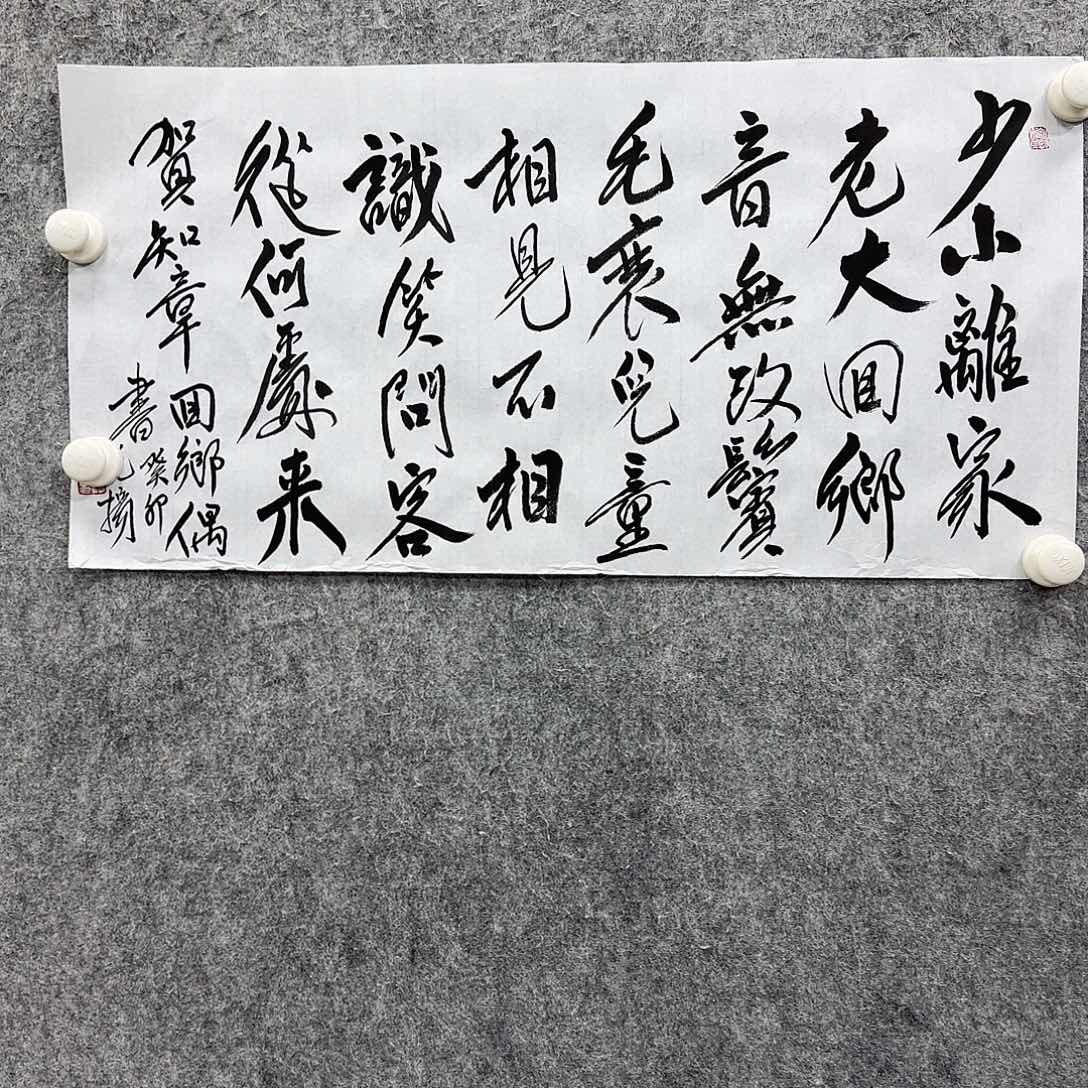 少小離家
老大回鄉
音無改鬢
毛衰兒童
相見不相
識笑問客
從何處来
賀知章回鄉偶
書癸卯